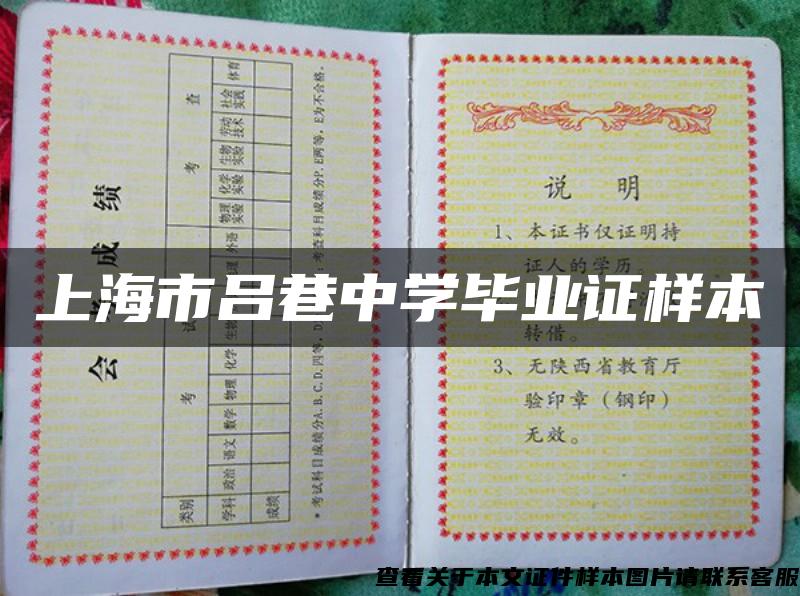 会考成绩
类别
考试
考查
学科
政治
语文
数学
物理
化学
生物
地理
外语
物理实验
化学实验
生物实验
劳动技术
社会实践
体育
成绩
*考试科目成绩分A、B、C、D四等,D
:考查科目成绩分P、E两等,E为不合格。
说 明
1、本证书仅证明持
证人的学历。
转借。
3、无陕西省教育厅
验印章(钢印)
无效。
上海市吕巷中学毕业证样本
查看关于本文证件样本图片请联系客服